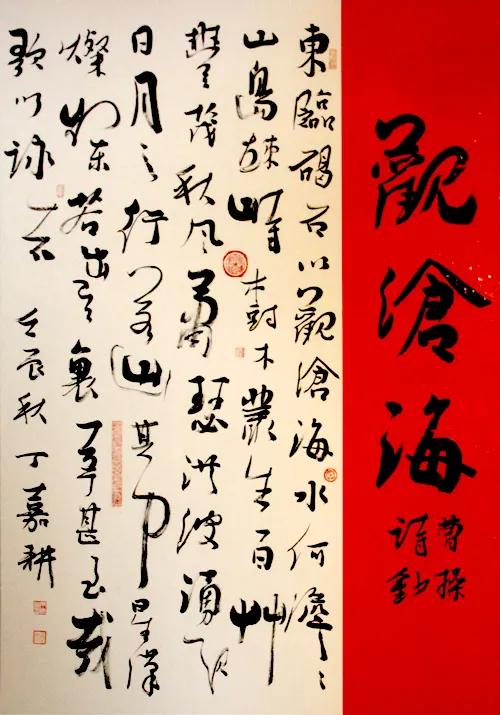 觀滄海
曹操
詩
東臨碣石以觀滄海水何澹々
山島竦峙樹木叢生百艸
豐茂秋风蕭瑟洪波湧起
日月之行若出其中星漢
燦爛若出其裏幸甚至哉
歌以詠志 壬辰秋 丁嘉耕